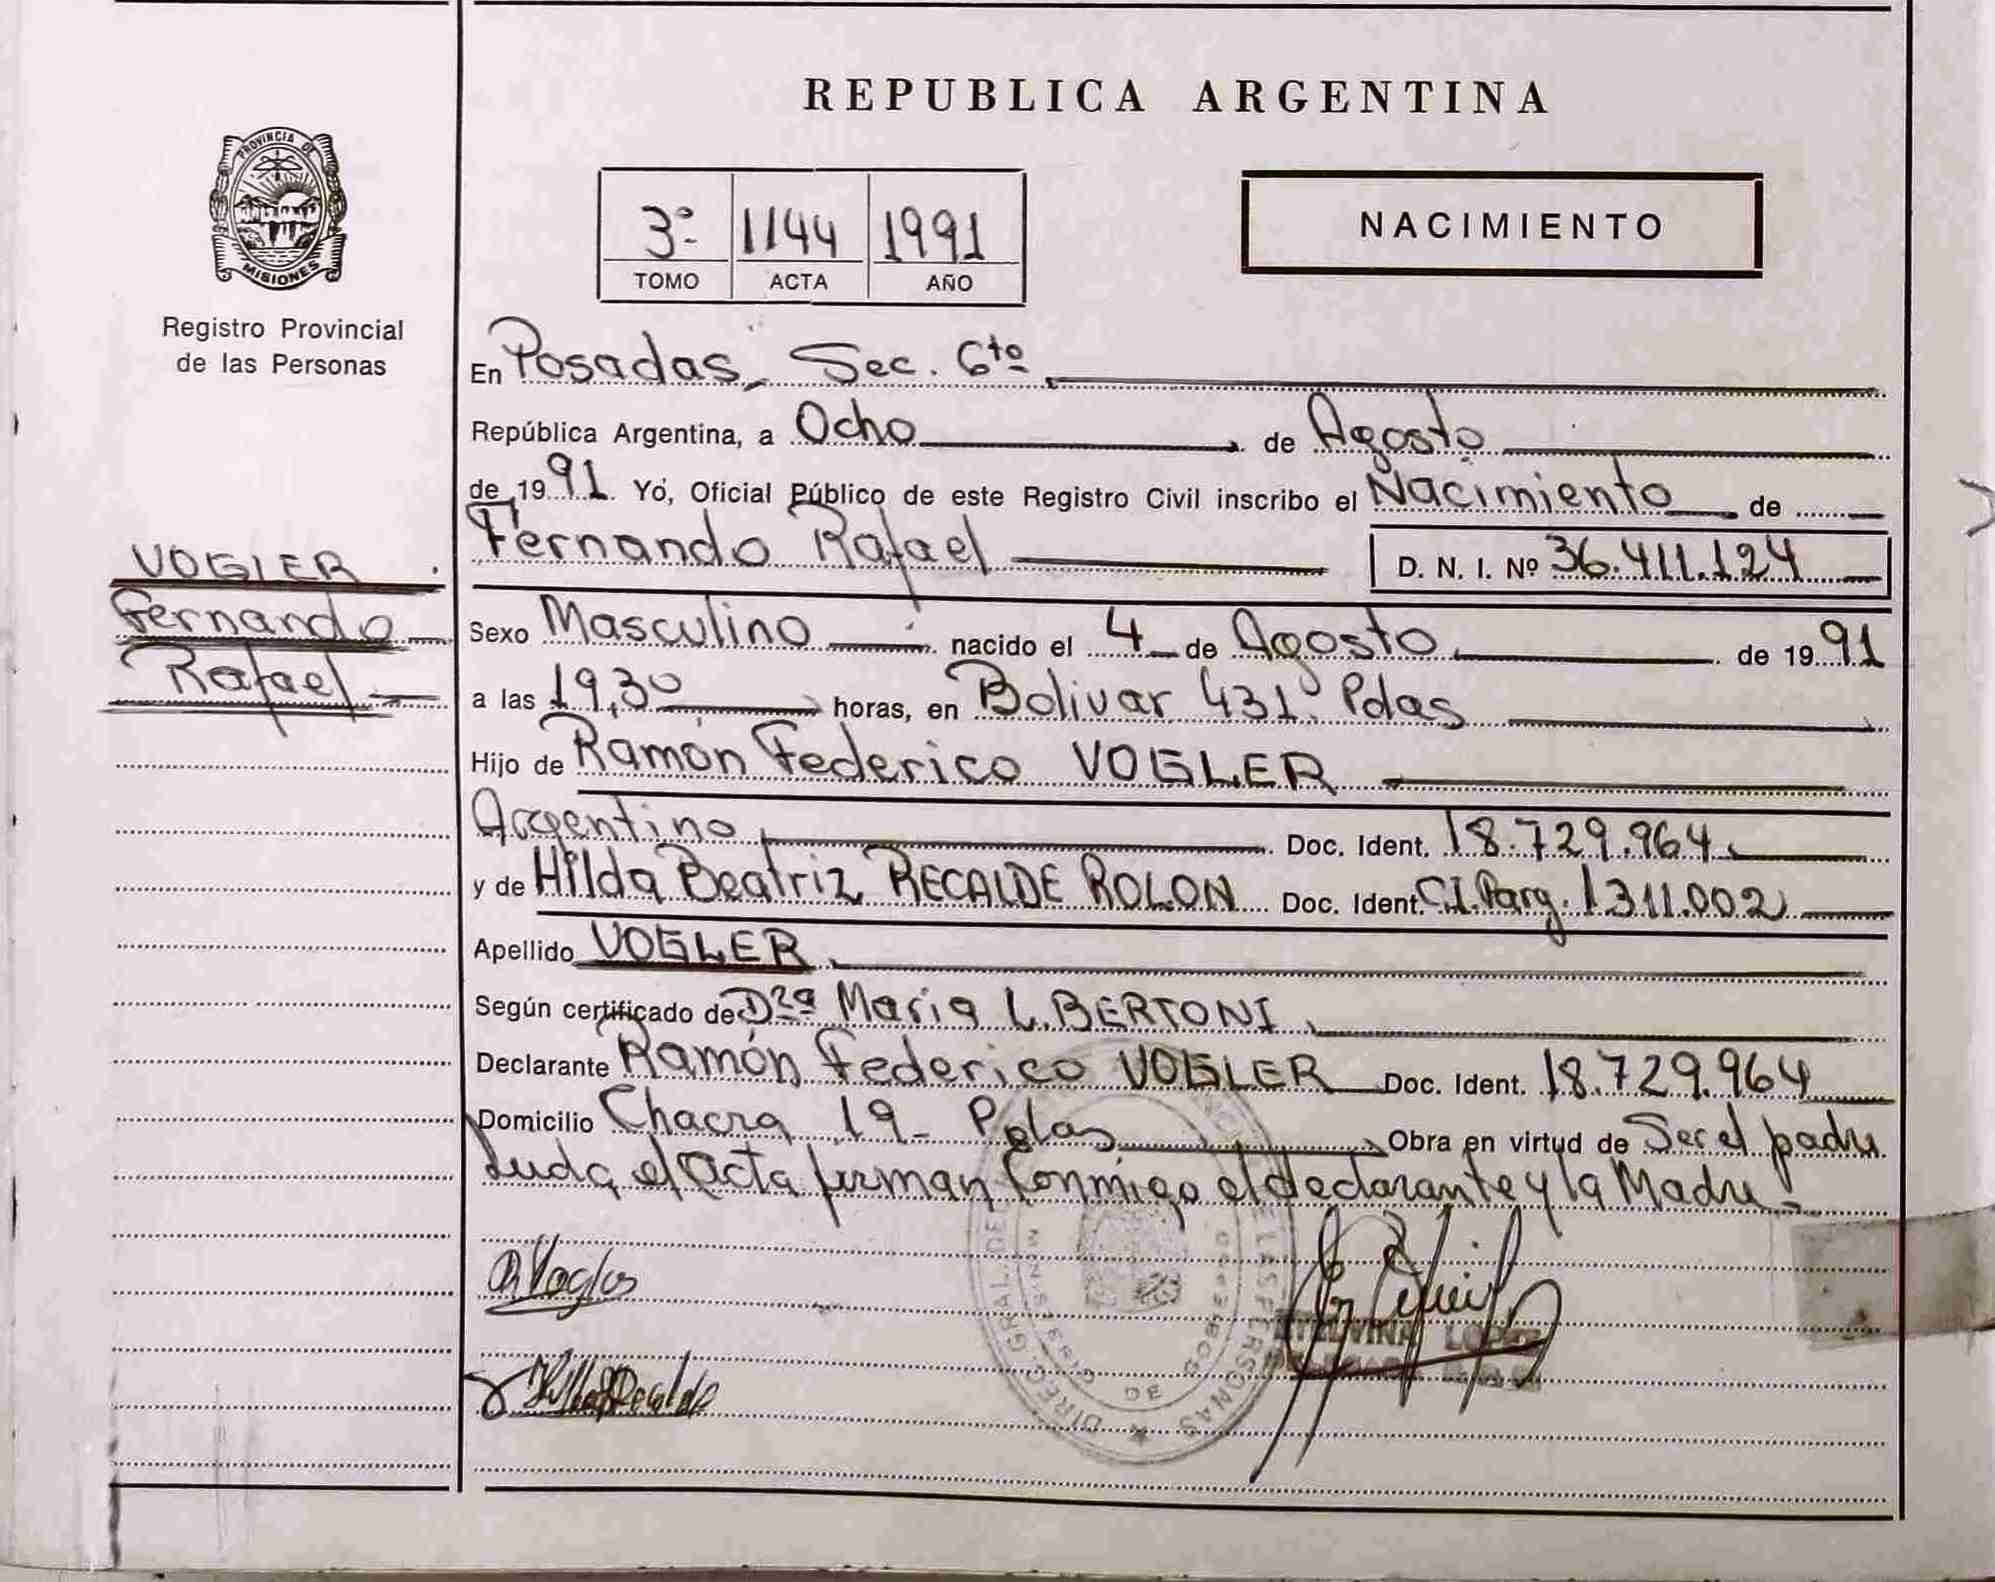 REPUBLICA ARGENTINA
PROVINCIA DE
MISIONES
Registro Provincial
de las Personas
3º 1144 1991
TOMO ACTA AÑO
NACIMIENTO
En Posadas, Sec. 6to
República Argentina, a Ocho de Agosto
de 1991. Yo, Oficial Público de este Registro Civil inscribo el Nacimiento de
Fernando Rafael D. N. I. Nº 36.411.124
VOGLER
Fernando
Rafael
Sexo Masculino nacido el 4 de Agosto de 1991
a las 19,30 horas, en Bolivar 431. Pdas
Hijo de Ramón Federico VOGLER
Argentino Doc. Ident. 18.729.964
y de Hilda Beatriz RECALDE ROLON Doc. Ident. C.I. Parg. 1311.002
Apellido VOGLER
Según certificado de Dra Maria L. BERTONI
Declarante Ramón Federico VOGLER Doc. Ident. 18.729.964
Domicilio Chacra 19- Pdas Obra en virtud de Ser el padre
Leida el Acta firman Conmigo el declarante y la Madre-
DIREC. GRAL. DE LAS PERSONAS
MISIONES
LOPEZ